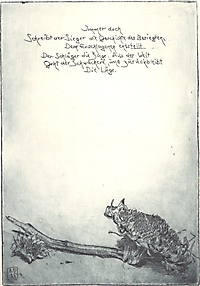 Immer doch
Schreibt der Sieger die Geschichte des Besiegten.
Dem Erschlagenen entstellt
Der Schläger die Züge. Aus der Welt
Geht der Schwächere, und zurückbleibt
Die Lüge.